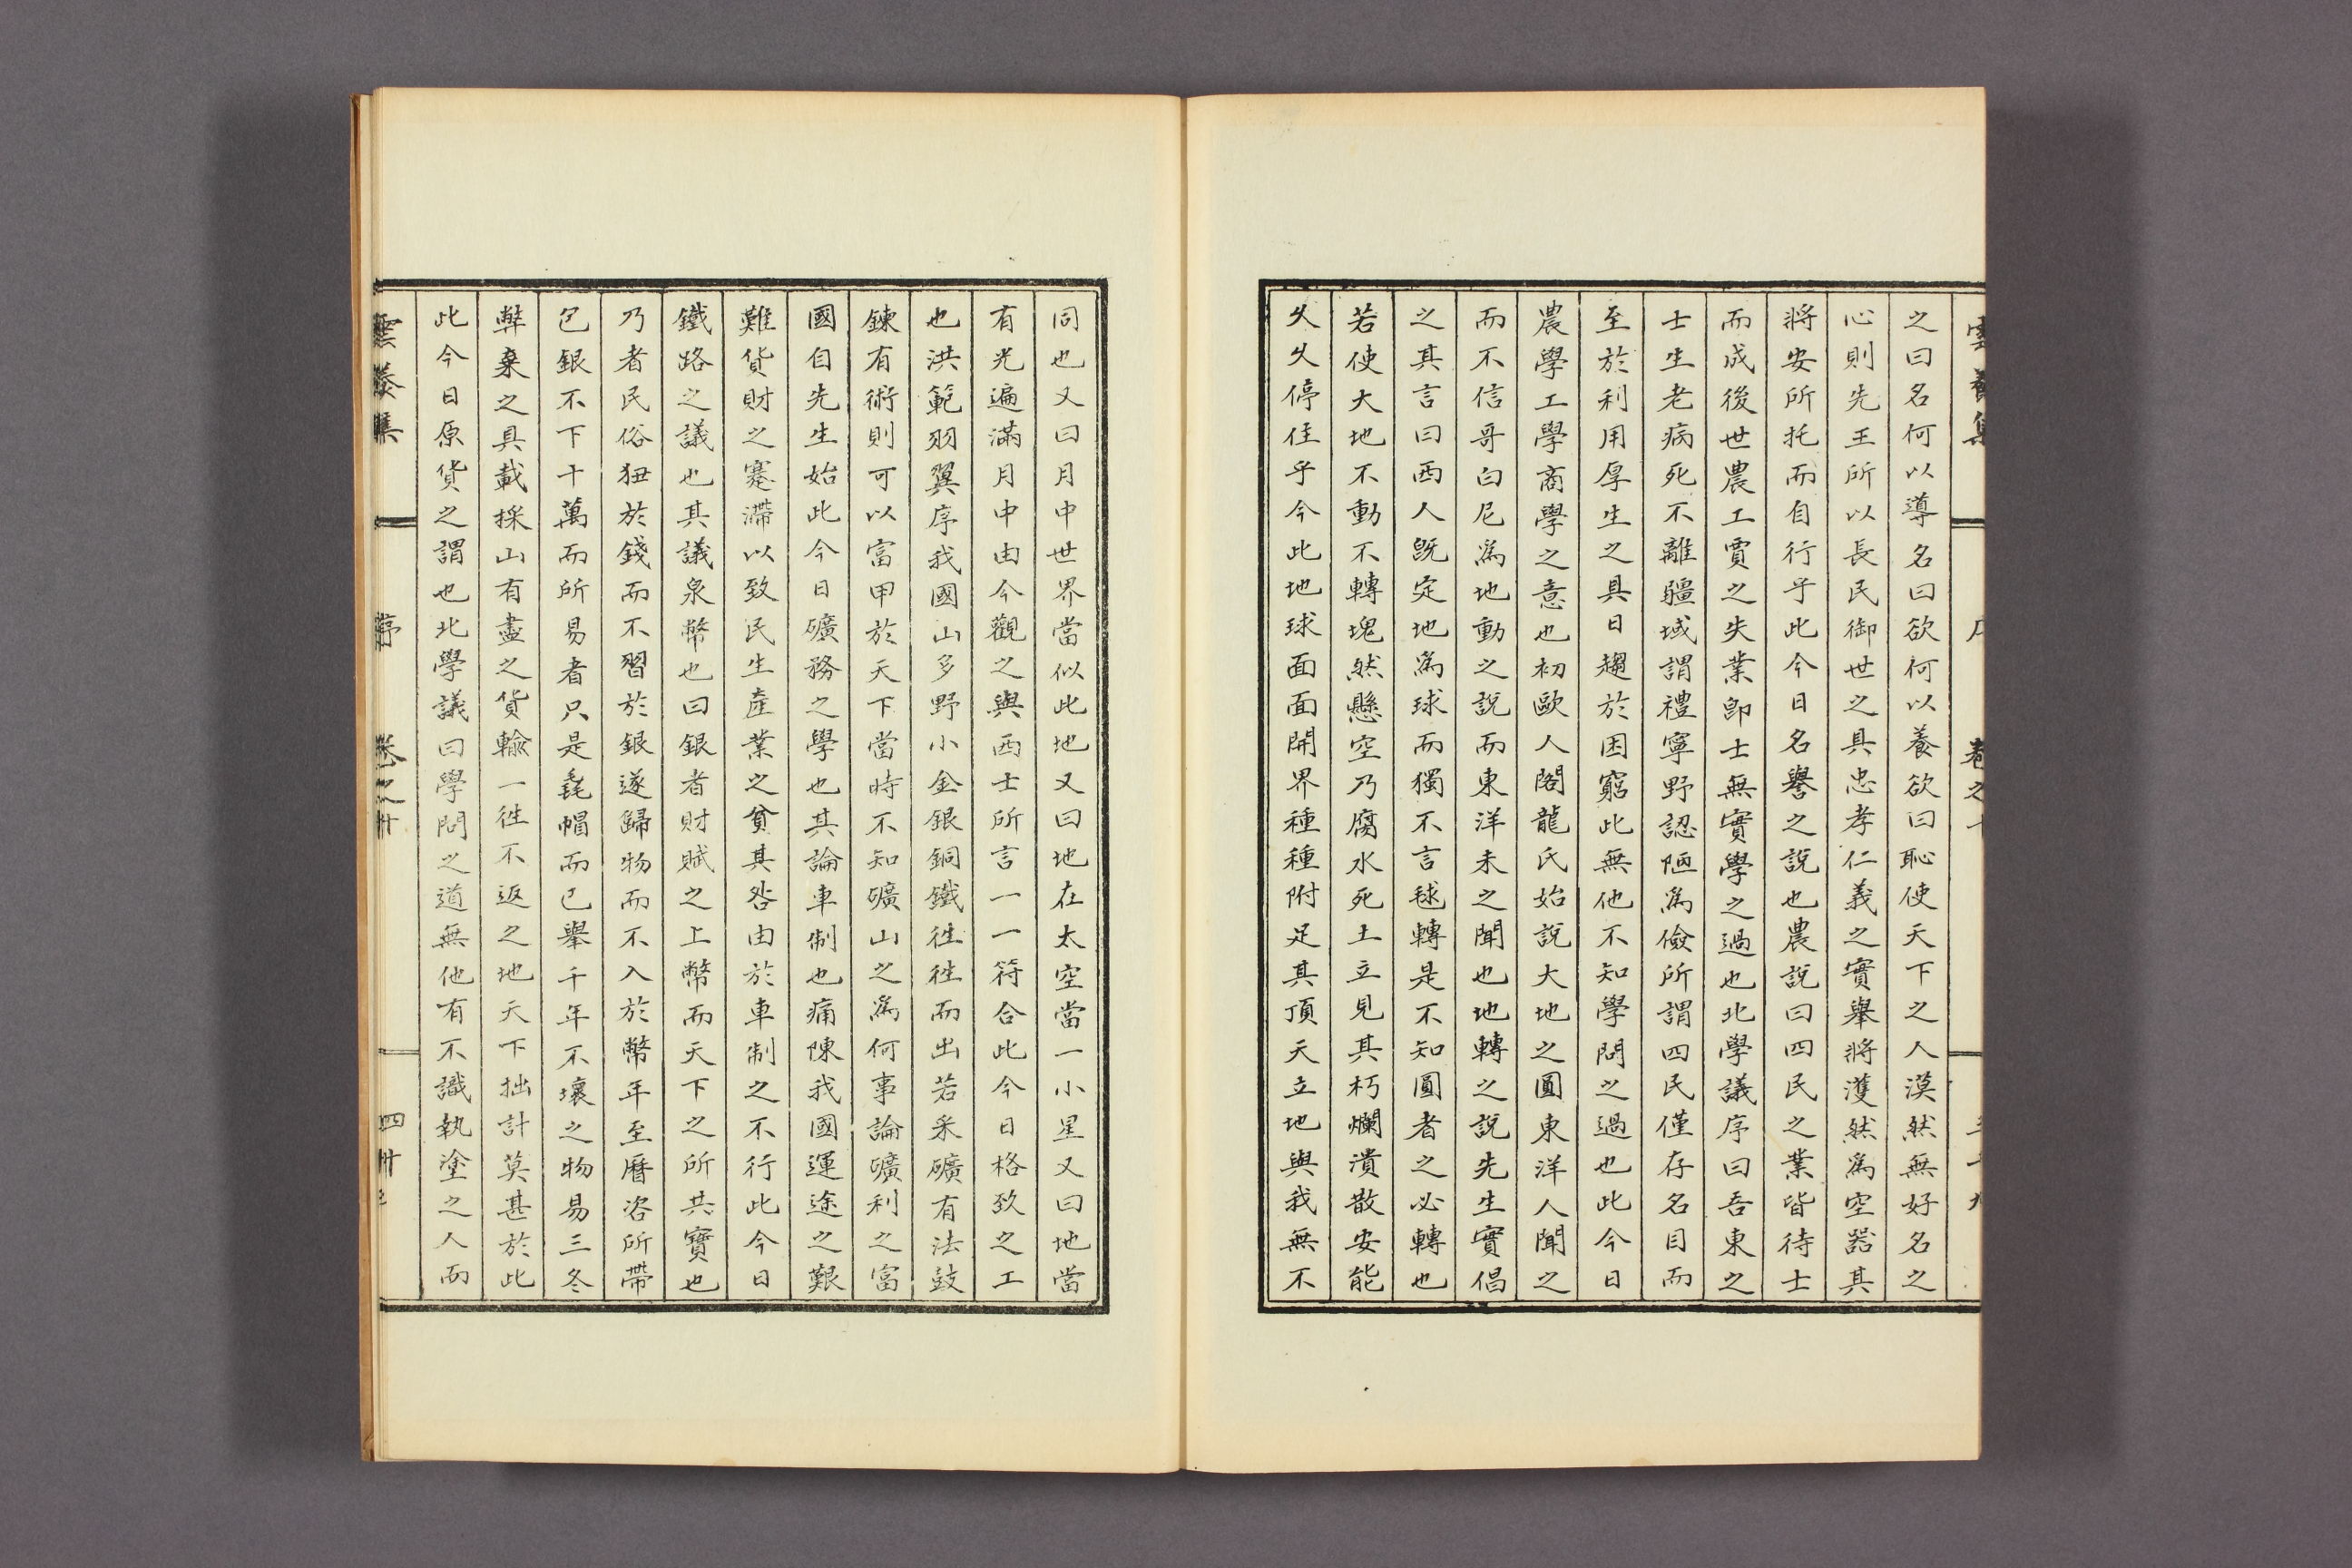 之曰名何以導名曰欲何以養欲曰恥使天下之人漠然無好名之
心則先王所以長民御世之具忠孝仁義之實舉將濩然爲空器其
將安所托而自行乎此今日名譽之說也農說曰四民之業皆待士
而成後世農工賈之失業卽士無實學之過也北學議序曰吾東之
士生老病死不離疆域謂禮寧野認陋爲儉所謂四民僅存名目而
至於利用厚生之具日趨於困窮此無他不知學問之過也此今日
農學工學商學之意也初歐人閣龍氏始說大地之圓東洋人聞之
而不信哥白尼爲地動之說而東洋未之聞也地轉之說先生實倡
之其言曰西人旣定地爲球而獨不言毬轉是不知圓者之必轉也
若使大地不動不轉塊然懸空乃腐水死土立見其朽爛潰散安能
久久停住乎今此地球面面開界種種附足其頂天立地與我無不
同也又曰月中世界當似此地又曰地在太空當一小星又曰地當
有光遍滿月中由今觀之與西士所言一一符合此今日格致之工
也洪範羽翼序我國山多野小金銀銅鐵徃徃而出若采礦有法鼓
鍊有術則可以富甲於天下當時不知礦山之爲何事論礦利之富
國自先生始此今日礦務之學也其論車制也痛陳我國運途之艱
難貨財之蹇滯以致民生產業之貧其咎由於車制之不行此今日
鐵路之議也其議泉幣也曰銀者財賦之上幣而天下之所共寶也
乃者民俗狃於錢而不習於銀遂歸物而不入於幣年至曆咨所帶
包銀不下十萬而所易者只是毳帽而已擧千年不壞之物易三冬
弊棄之具載採山有盡之貨輸一徃不返之地天下拙計莫甚於此
此今日原貨之謂也北學議曰學問之道無他有不識執塗之人而
雲養集 序 卷之十 四十